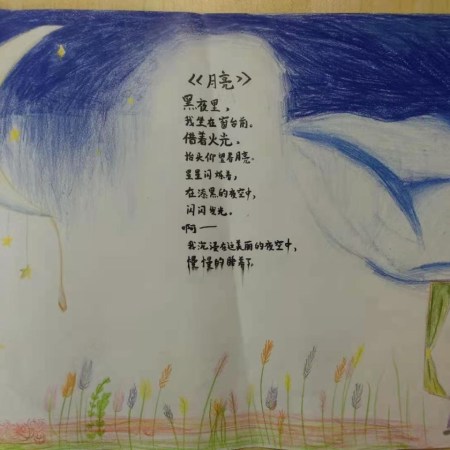 《月亮》
黑夜里，
我坐在窗台前。
借着火光。
抬头仰望着月亮。
星星闪烁着，
在漆黑的夜空中，
闪闪发光。
啊——
我沉浸在这美丽的夜空中，
慢慢的睡着了